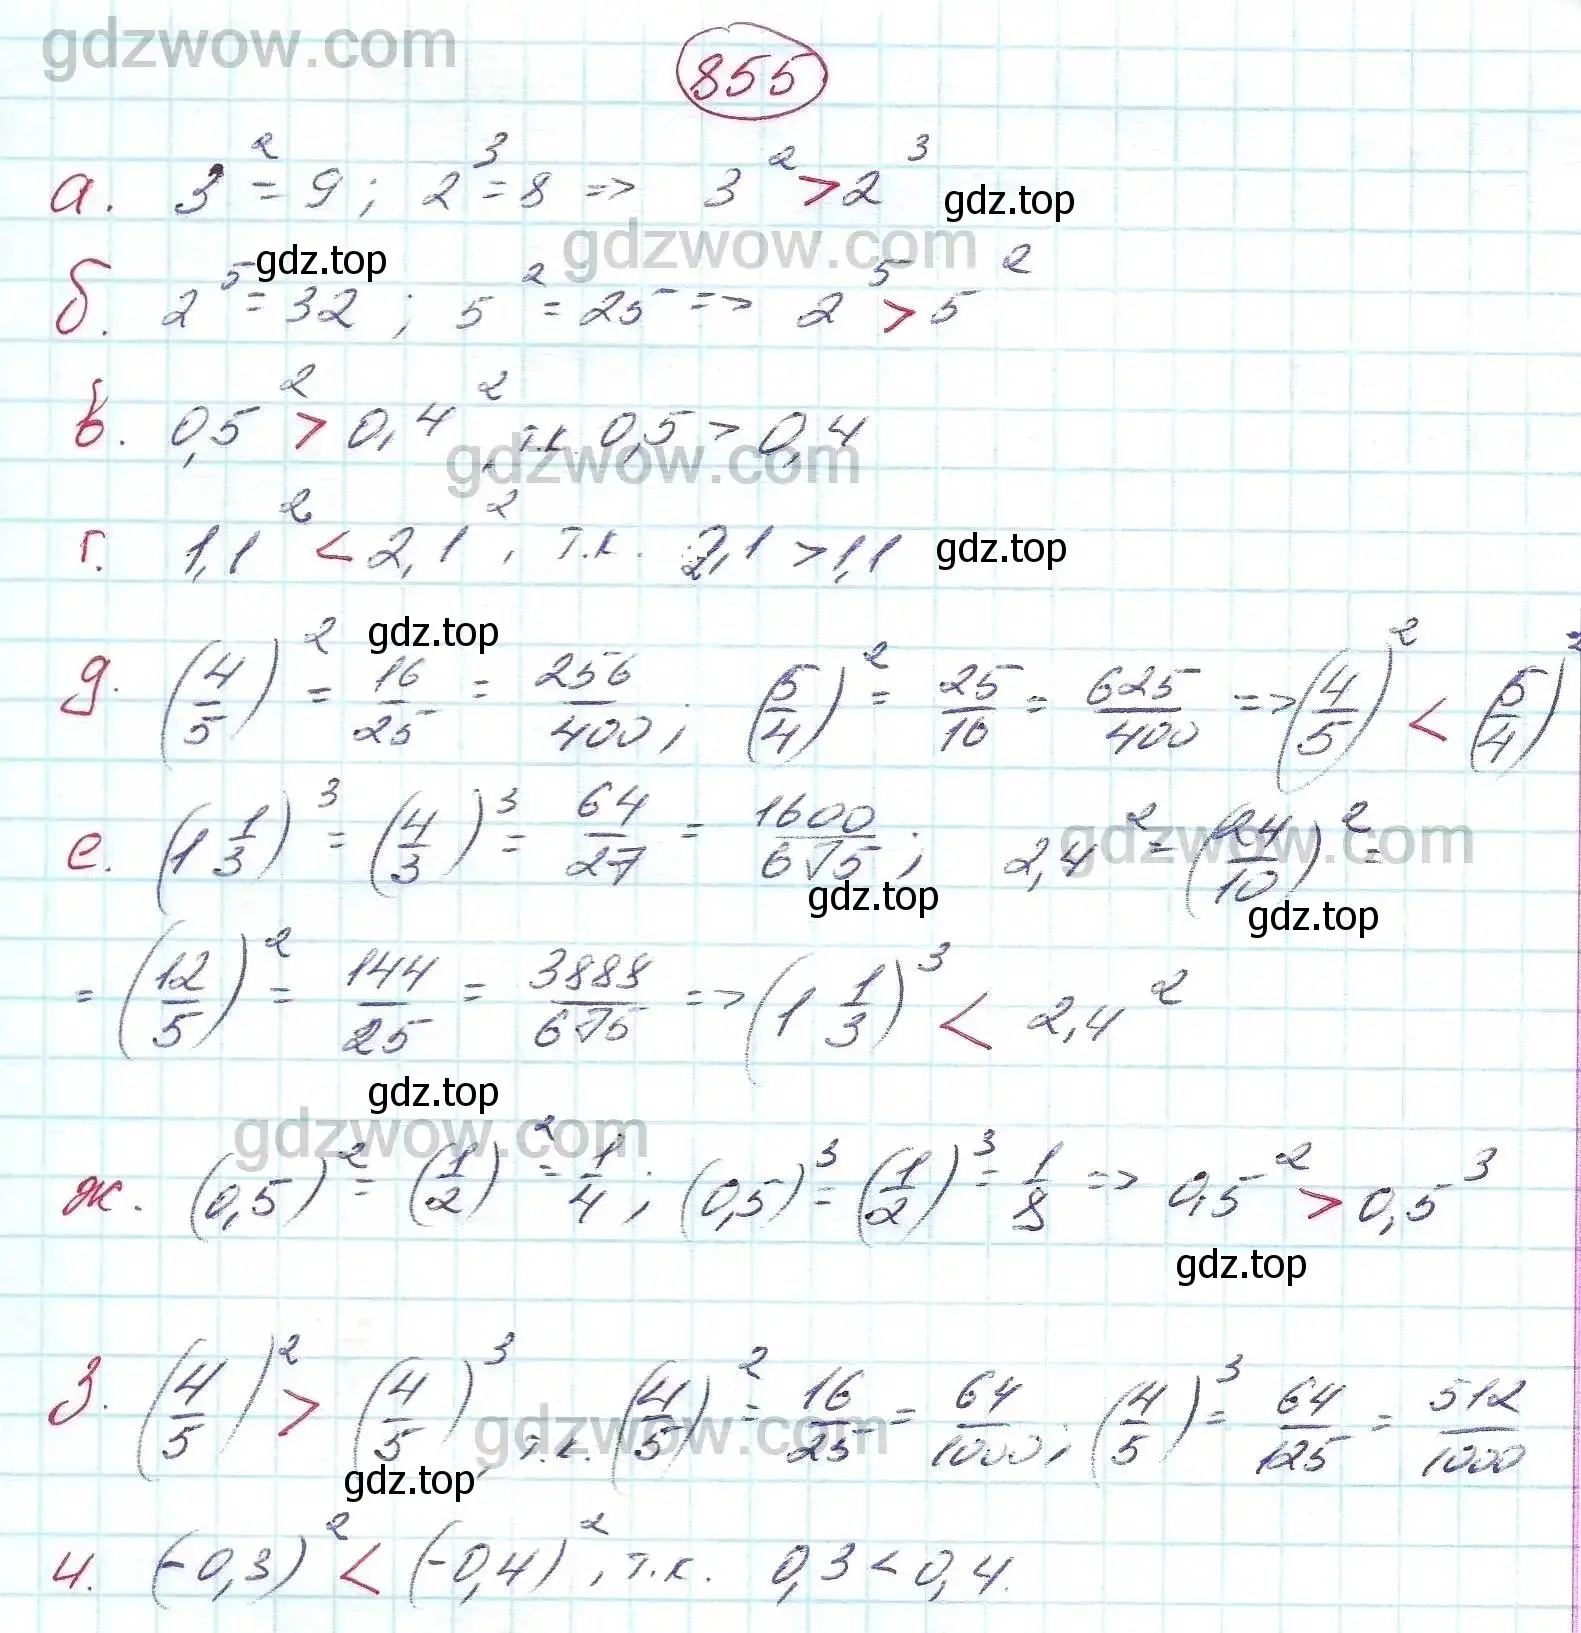 gdzwow.com
855
а. 3² = 9; 2³ = 8 => 3² > 2³ gdz.top
gdz.top gdzwow.com
б. 2⁵ = 32; 5² = 25 => 2⁵ > 5²
в. 0,5² > 0,4², т.к. 0,5 > 0,4
gdzwow.com
г. 1,1² < 2,1², т.к. 2,1 > 1,1 gdz.top
gdz.top
д. (4/5)² = 16/25 = 256/400; (5/4)² = 25/16 = 625/400 => (4/5)² < (5/4)²
е. (1 1/3)³ = (4/3)³ = 64/27 = 1600/675; 2,4² = (24/10)² =
gdzwow.com
gdz.top gdz.top
= (12/5)² = 144/25 = 3888/675 => (1 1/3)³ < 2,4²
gdz.top
gdzwow.com
ж. (0,5)² = (1/2)² = 1/4; (0,5)³ = (1/2)³ = 1/8 => 0,5² > 0,5³
gdz.top
з. (4/5)² > (4/5)³, т.к. (4/5)² = 16/25 = 64/1000; (4/5)³ = 64/125 = 512/1000
gdzwow.com
gdz.top
и. (-0,3)² < (-0,4)², т.к. 0,3 < 0,4.